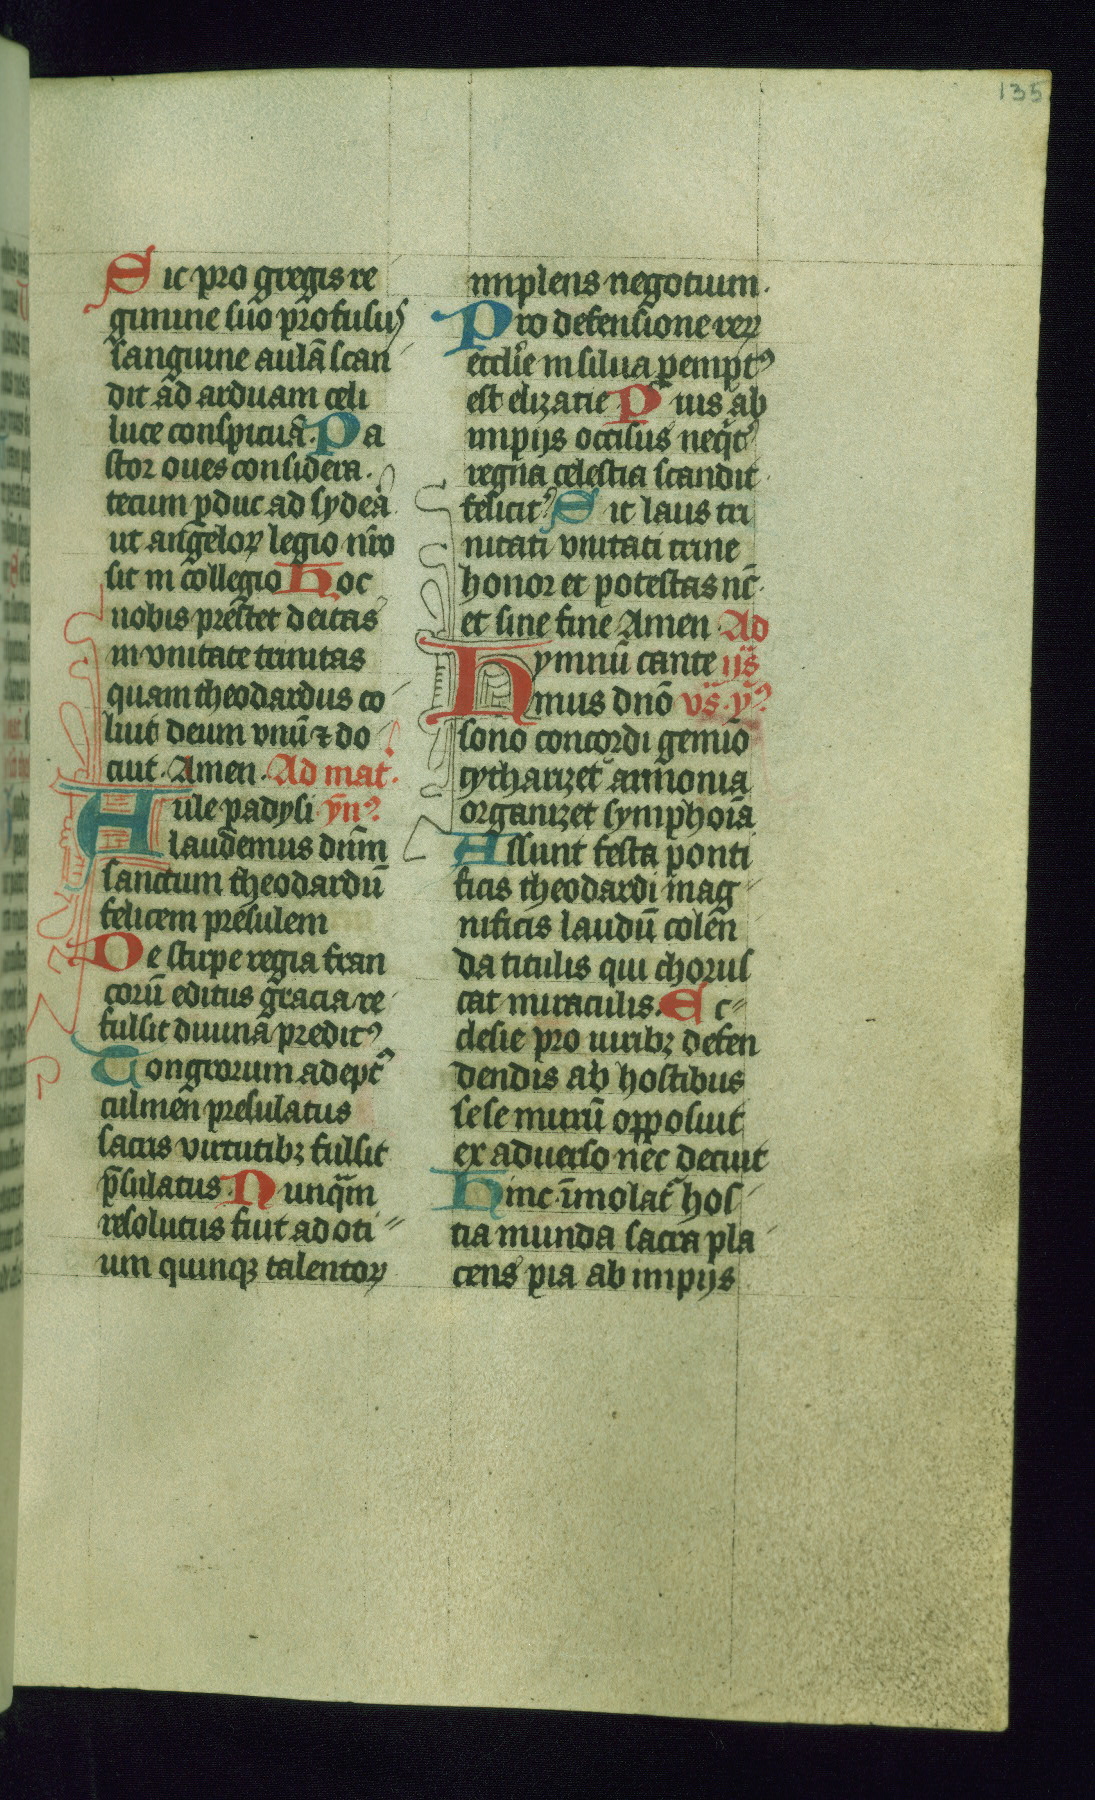 135
Sic pro gregis re
gimine suo profusus
sanguine aulā scan
dit ad arduam celi
luce conspicuā. Pa
stor oues considera.
tecum ꝑduc ad sydea
ut angeloꝝ legio nr̄o
sit in collegio Hoc
nobis prestet deitas
in vnitate trinitas
quam theodardus co
luit deum vnū ⁊ do
cuit. Amen. Ad mat.
Aule padysi. yn̄ꝰ
laudemus dnm̄
sanctum theodardū
felicem presulem
De stirpe regia fran
corū editus gracia re
fulsit diuina preditꝰ
Tongrorum adeptꝰ
culmen presulatus
sacris virtutibꝫ fulsit
p̄sulatus. Nunqm̄
resolutus fuit ad oti
um quinqꝫ talentoꝝ
implens negotium.
Pro defensione reꝝ
eccl̄ie in silua ꝑemptꝰ
est elizatie Pius ab
impijs occisus neqit᷑
regna celestia scandit
felicit᷑ Sit laus tri
nitati vnitati trine
honor et potestas nc̄
et sine fine Amen Ad
Hymnū cante ijs̄
mus dnō vs̄. yꝰ
sono concordi gemio
cytharizet armonia
organizet symphoīa
Assunt festa ponti
ficis theodardi mag
nificis laudū colen̄
da titulis qui chorus
cat miraculis. Ec
clesie pro iuribꝫ defen
dendis ab hostibus
sese murū opposuit
ex aduerso nec deciuit
Hinc īmolat᷑ hos
tia munda sacra pla
cens pia ab impijs